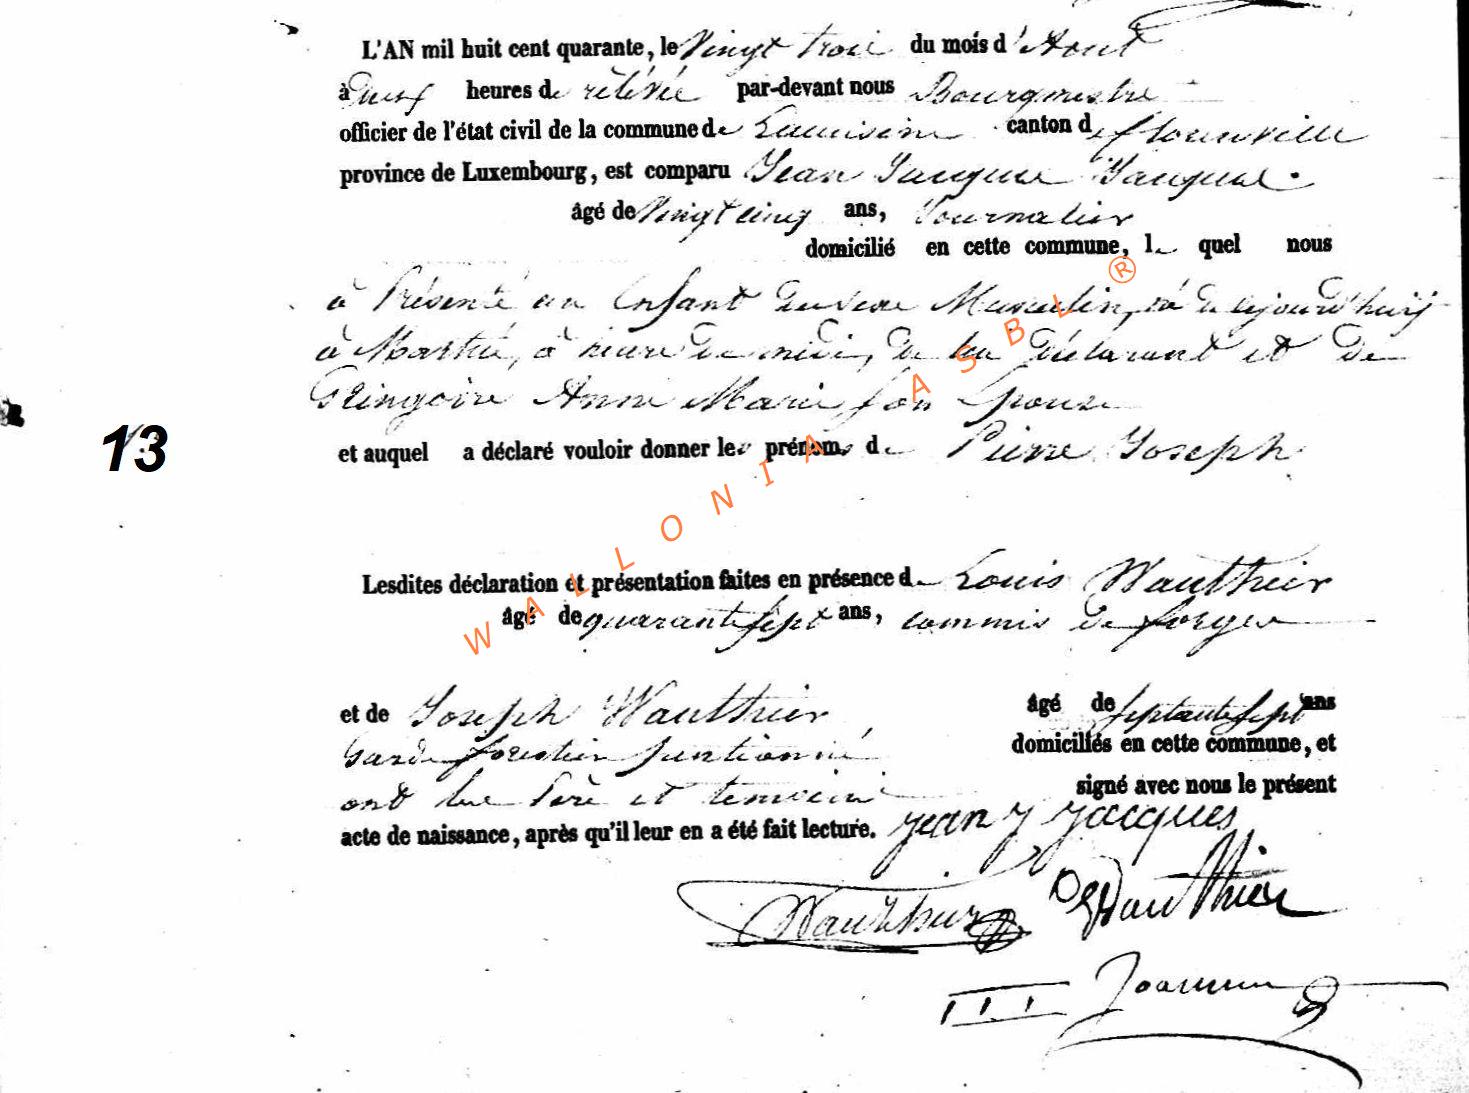 L'AN mil huit cent quarante, le Vingt trois du mois d'Aout
à neuf heures de rélévée par-devant nous Bourgmestre
officier de l'état civil de la commune de canton de florenville
province de Luxembourg, est comparu Jean Jacques Jacques
âgé de Vingt cinq ans, Journalier
domicilié en cette commune, le quel nous
à Présenté un Enfant du sexe Masculin, né aujourd'huij
à à heure de midi, de lui déclarant et de
Gringoire Anne Marie, son Epouse
13
et auquel a déclaré vouloir donner les prénoms de Pierre Joseph
Lesdites déclaration et présentation faites en présence de Louis Wauthier
âgé de quarante sept ans, commis de forges
et de Joseph Wauthier âgé de septante sept ans
Garde forestier pentionné domiciliés en cette commune, et
ont les Père et temoins signé avec nous le présent
acte de naissance, après qu'il leur en a été fait lecture. jean j jacques
Wauthier Wauthier
WALLONIA ASBL ®